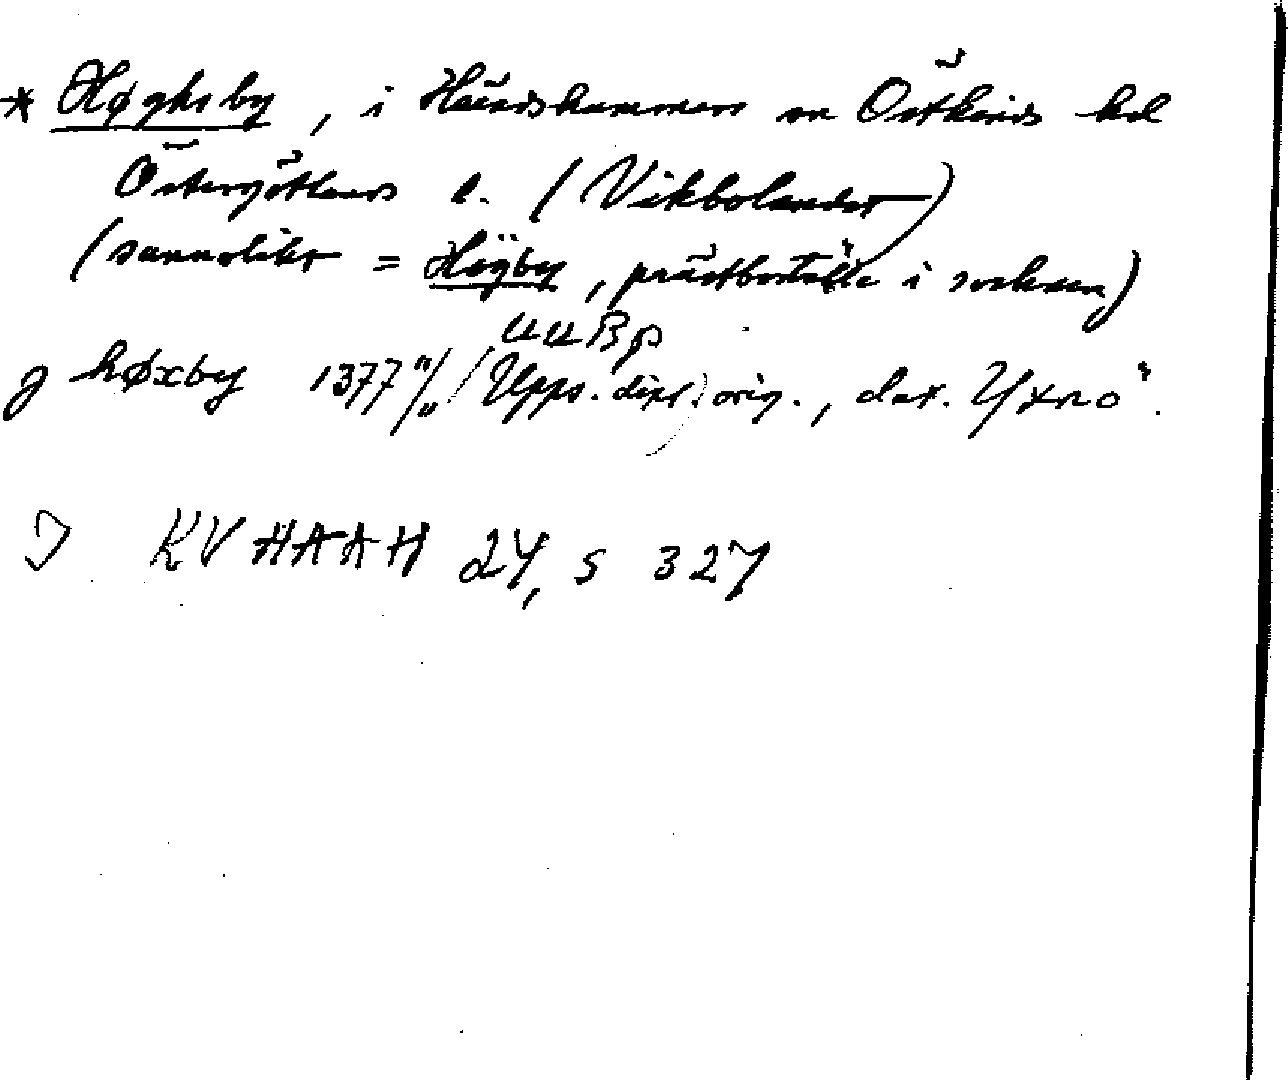 * Høghsby, i Häradshammars sn Östkinds hd
Östergötlands l. (Vikbolandet)
(sannolikt = Högby, prästboställe i socknen)
UUB p
J høxby 1377 (Upps. dipl.) orig., dat. Yxno".
KVHAAH 24, s 327